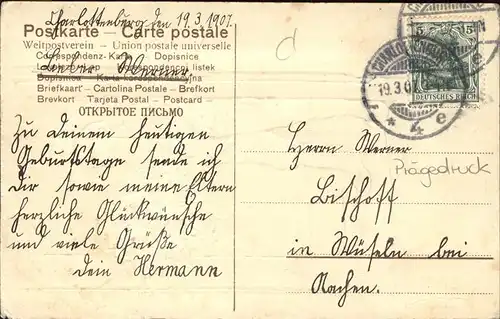 Charlottenburg den 19.3.1907.
Postkarte — Carte postale
Weltpostverein - Union postale universelle
Correspondenz-Karte Dopisnice
Lieber Werner,
Dopisnica
Briefkaart - Cartolina Postale - Brefkort
Brevkort Tarjeta Postal - Postcard
ОТКРЫТОЕ ПИСЬМО
Zu deinem heutigen
Geburtstage sende ich
dir sowie meine Eltern
herzliche Glückwünsche
und viele Grüße
dein Hermann
d
5 5
DEUTSCHES REICH
19.3.0
* 4 e
Herrn Werner
Prägedruck
Bischoff
in Würseln bei
Aachen.